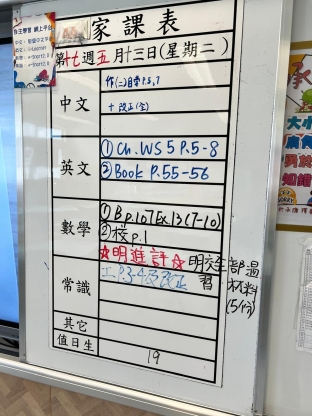 家課表
第十七週五月十三日(星期二)
中文
作(二)自學P.5,7
+ 改正(全)
英文
① Ch. WS 5 P.5-8
② Book P.55-56
數學
① B p.107 Ex.13(7-10)
② 校 p.1
☆明進評☆
常識
工P.3-4及改正
明交全部溫
習材料
(5份)
其它
值日生
19
自主學習 網上平台